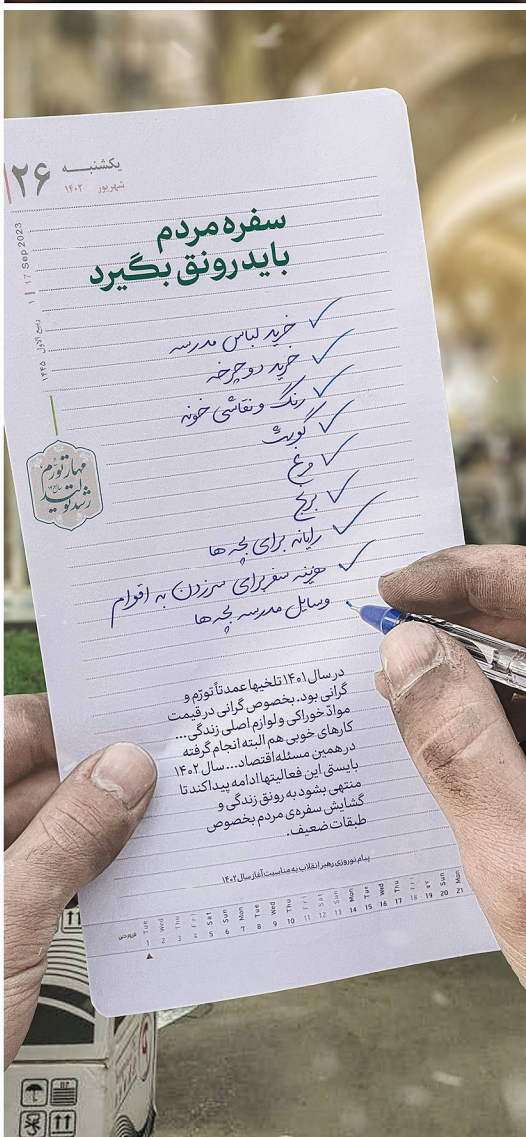 یکشنبــه
۲۶
شهریور ۱۴۰۲
17 Sep 2023
۱ ربیع الاول ۱۴۴۵
سفره مردم
باید رونق بگیرد
خرید لباس مدرسه
خرید دوچرخه
رنگ و نقاشی خونه
گوشت
مرغ
برنج
رایانه برای بچه ها
هزینه سفر برای سرزدن به اقوام
وسایل مدرسه بچه ها
مهار تورّم
رشد تولید
در سال ۱۴۰۱ تلخیها عمدتاً تورّم و
گرانی بود. بخصوص گرانی در قیمت
موادّ خوراکی و لوازم اصلی زندگی...
کارهای خوبی هم البته انجام گرفته
در همین مسئله اقتصاد... سال ۱۴۰۲
بایستی این فعالیتها ادامه پیدا کند تا
منتهی بشود به رونق زندگی و
گشایش سفره‌ی مردم بخصوص
طبقات ضعیف.
پیام نوروزی رهبر انقلاب به مناسبت آغاز سال ۱۴۰۲
فروردین
Tue Wed Thu Fri Sat Sun Mon Tue Wed Thu Fri Sat Sun Mon Tue Wed Thu Fri Sat Sun Mon
1 2 3 4 5 6 7 8 9 10 11 12 13 14 15 16 17 18 19 20 21